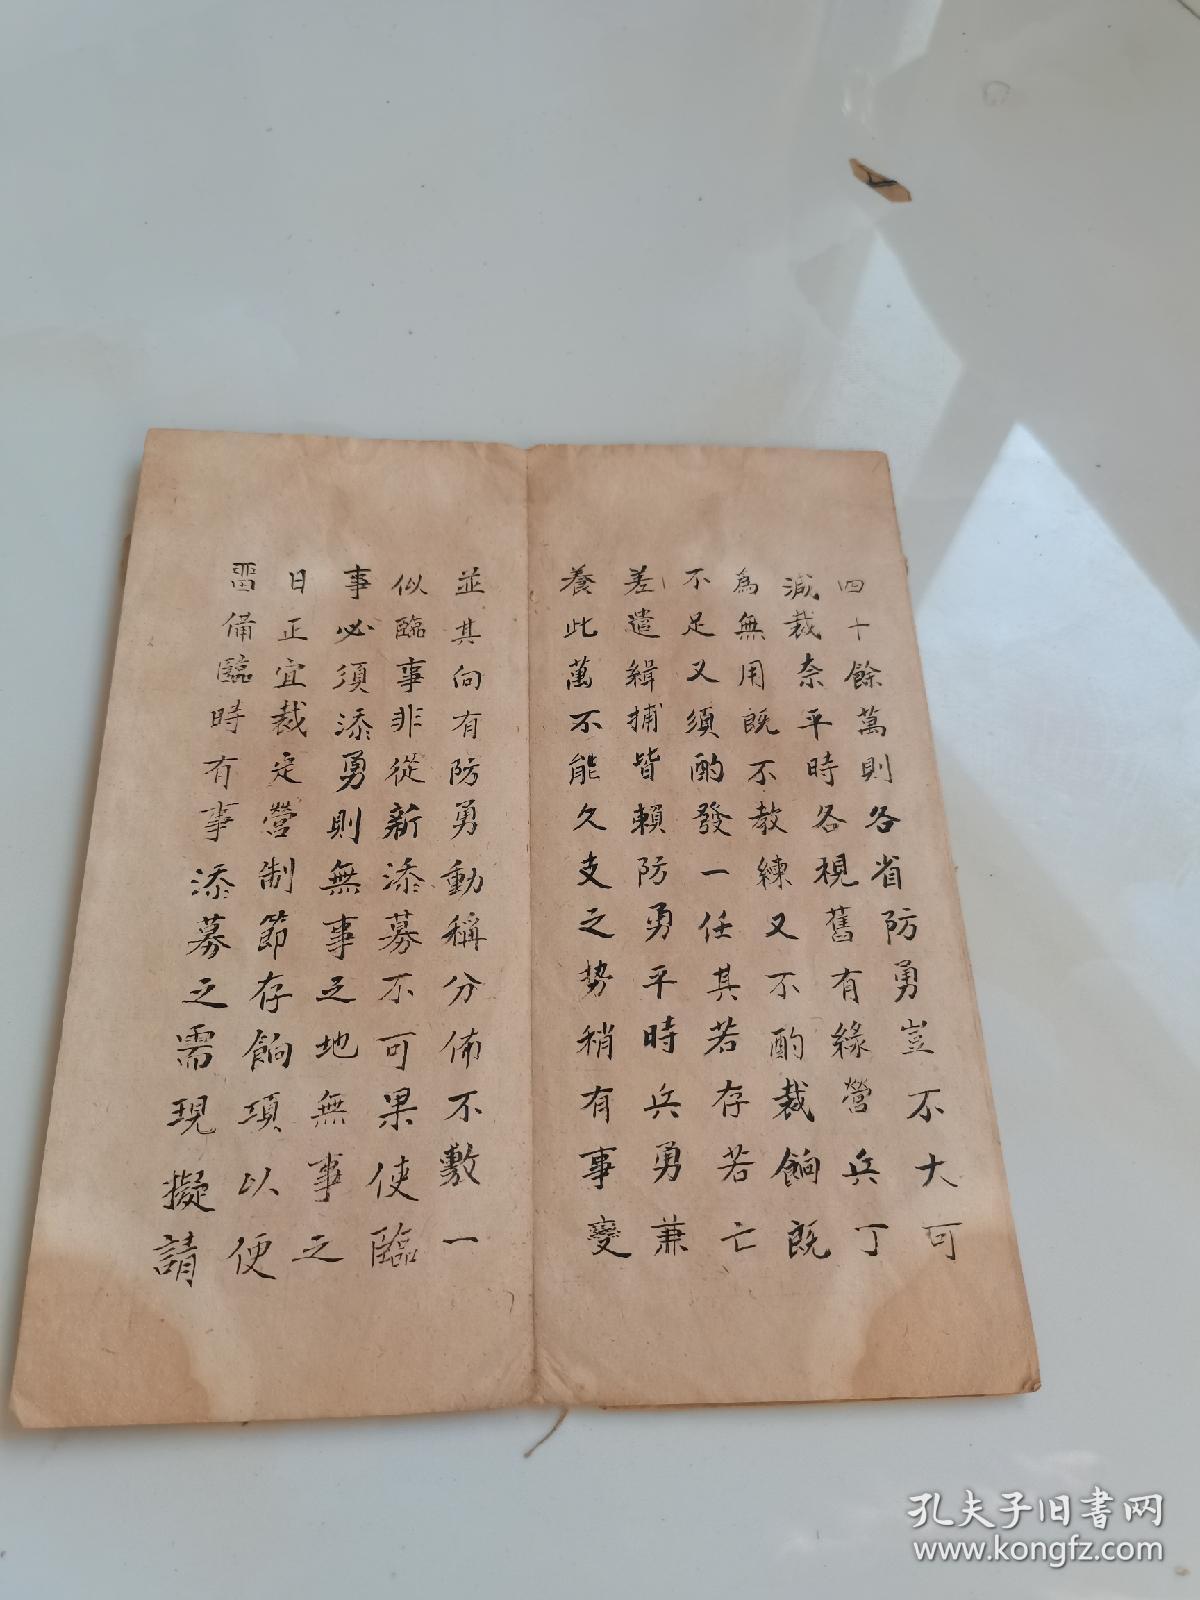 四十餘萬則各省防勇豈不大可
減裁奈平時各視舊有緣營兵丁
為無用既不教練又不酌裁餉既
不足又須酌發一任其若存若亡
差遣緝捕皆賴防勇平時兵勇兼
養此萬不能久支之势稍有事變
並其向有防勇動稱分佈不敷一
似臨事非從新添募不可果使臨
事必須添勇則無事之地無事之
日正宜裁定營制節存餉項以便
畱備臨時有事添募之需現擬請
孔夫子旧书网
www.kongfz.com